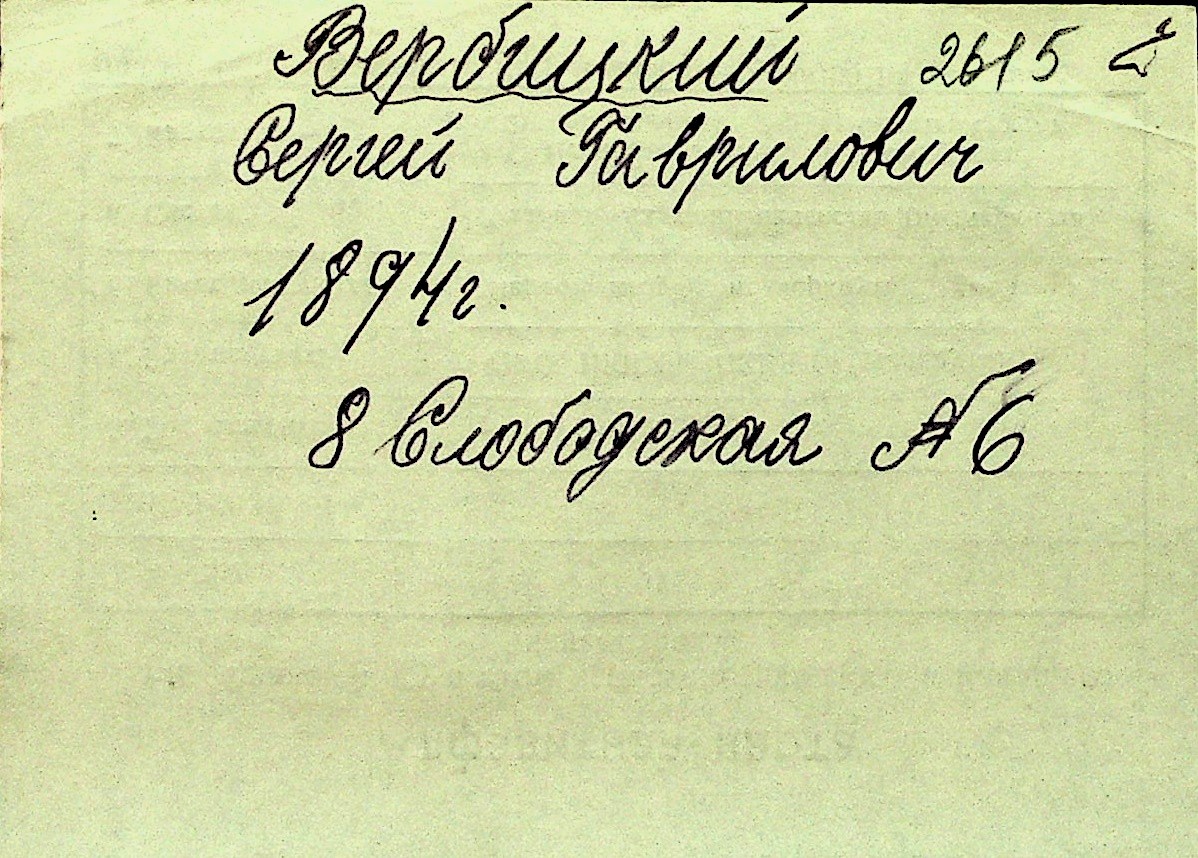 Вербицкий 2615
Сергей Гаврилович
1894г.
8 Слободская № 6